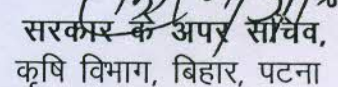 सरकार के अपर सचिव,
कृषि विभाग, बिहार, पटना